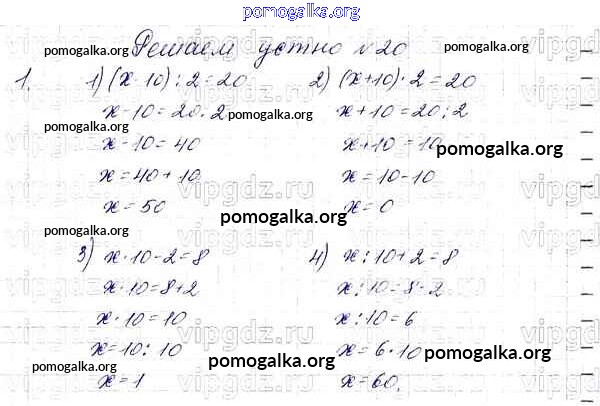 pomogalka.org
Решаем устно №20
1. 1) (x-10):2=20
x-10=20·2
x-10=40
x=40+10
x=50
2) (x+10)·2=20
x+10=20:2
x+10=10
x=10-10
x=0
3) x·10-2=8
x·10=8+2
x·10=10
x=10:10
x=1
4) x:10+2=8
x:10=8-2
x:10=6
x=6·10
x=60.
pomogalka.org
pomogalka.org
pomogalka.org
pomogalka.org
pomogalka.org
pomogalka.org
pomogalka.org
pomogalka.org
pomogalka.org
pomogalka.org
pomogalka.org
vipgdz.ru
vipgdz.ru
vipgdz.ru
vipgdz.ru